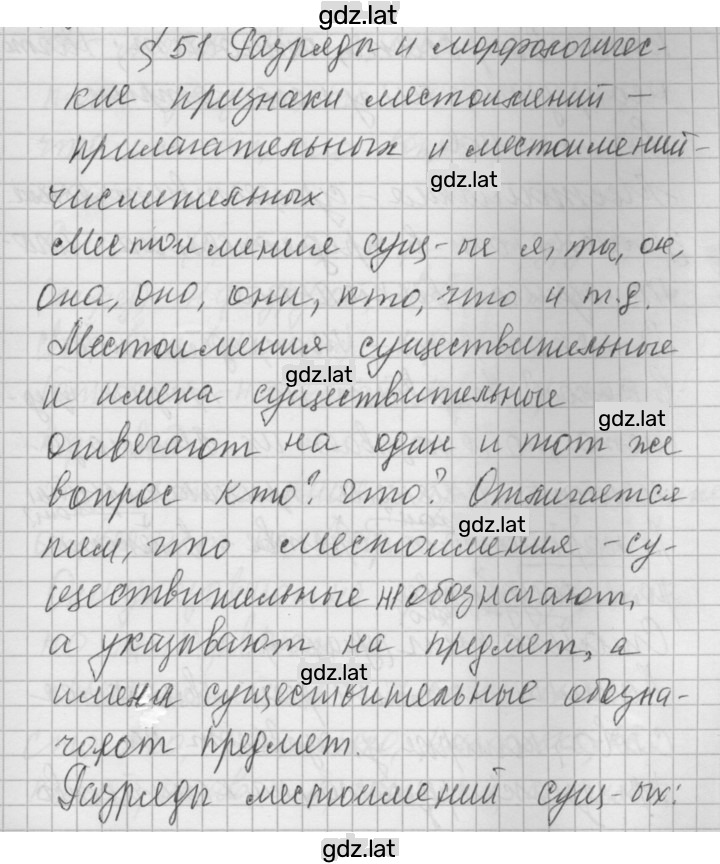 gdz.lat
§ 51 Разряды и морфологичес-
кие признаки местоимений –
прилагательных и местоимений-
gdz.lat
числительных
Местоимения сущ-ые я, ты, он,
она, оно, они, кто, что и т.д.
Местоимения существительные
gdz.lat
и имена существительные
gdz.lat
отвечают на один и тот же
вопрос кто? что? Отличается
gdz.lat
тем, что местоимения -су-
ществительные не обозначают,
а указывают на предмет, а
gdz.lat
имена существительные обозна-
чают предмет.
Разряды местоимений сущ-ых:
gdz.lat